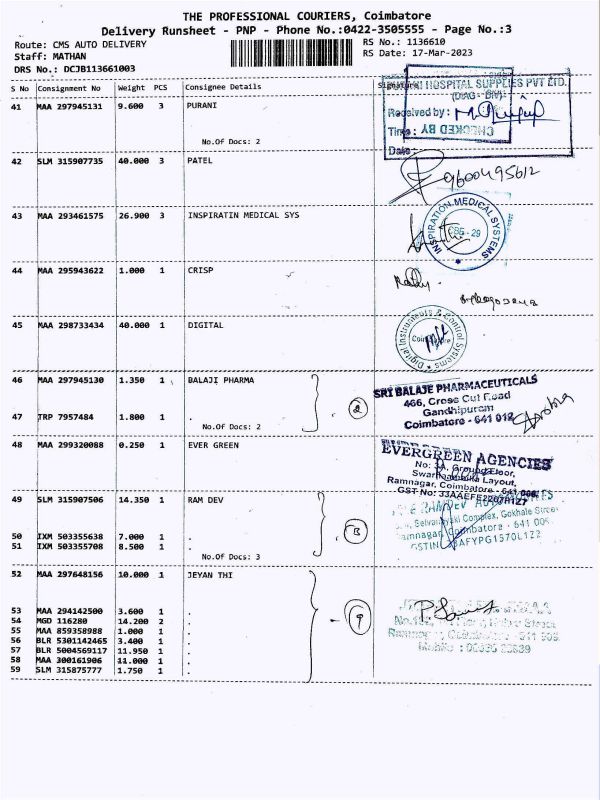 THE PROFESSIONAL COURIERS, Coimbatore
Delivery Runsheet - PNP - Phone No.:0422-3505555 - Page No.:3
Route: CMS AUTO DELIVERY
RS No.: 1136610
Staff: MATHAN
RS Date: 17-Mar-2023
DRS No.: DCJB113661003
S No Consignment No Weight PCS Consignee Details
41 MAA 297945131 9.600 3 PURANI
HOSPITAL SUPPLIES PVT LTD.
(DIAG - DIV)
Received by:
Time: CHECKED BY
No.Of Docs: 2
Date:
42 SLM 315907735 40.000 3 PATEL
9600495612
43 MAA 293461575 26.900 3 INSPIRATIN MEDICAL SYS
INSPIRATION MEDICAL SYSTEMS
CBE - 29
44 MAA 295943622 1.000 1 CRISP
45 MAA 298733434 40.000 1 DIGITAL
Digital Instruments & Control Systems
46 MAA 297945130 1.350 1 BALAJI PHARMA
2
SRI BALAJE PHARMACEUTICALS
466, Cross Cut Road
Gandhipuram
Coimbatore - 641 012
47 TRP 7957484 1.800 1 .
No.Of Docs: 2
48 MAA 299320088 0.250 1 EVER GREEN
EVERGREEN AGENCIES
Ground Floor,
Layout,
Ramnagar, Coimbatore - 641 009
GST No: 33AAEFE2207R1Z7
49 SLM 315907506 14.350 1 RAM DEV
Complex, Gokhale Street
Coimbatore - 641 009
50 IXM 503355638 7.000 1 .
51 IXM 503355708 8.500 1 .
No.Of Docs: 3
3
52 MAA 297648156 10.000 1 JEYAN THI
53 MAA 294142500 3.600 1 .
54 MGD 116280 14.200 2 .
55 MAA 859358988 1.000 1 .
56 BLR 5301142465 3.400 1 .
57 BLR 5004569117 11.950 1 .
58 MAA 300161906 11.000 1 .
59 SLM 315875777 1.750 1 .